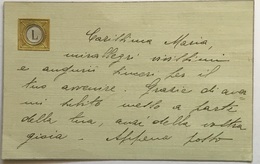 1
Carissima Maria,
mirallegri vivissimi
e auguri sinceri per il
tuo avvenire. Grazie di aver
mi subito messo a parte
della tua, anzi della vostra
gioia. Appena potrò